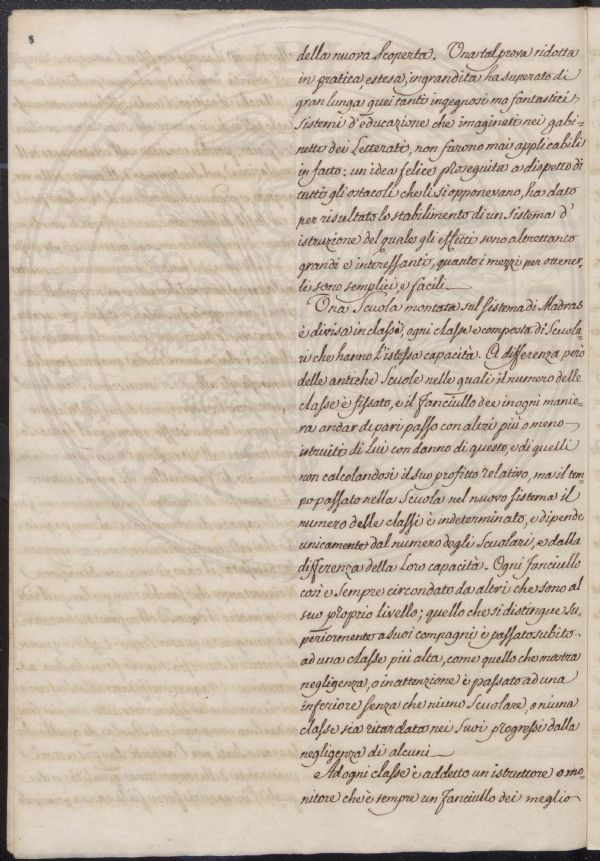 della nuova scoperta. Una tal prova ridotta
in pratica, estesa, ingrandita ha superato di
gran lunga quei tanti ingegnosi ma fantastici
Sistemi d'educazione che imaginati nei gabi=
netti dei Letterati, non furono mai applicabili
in fatto: un idea felice proseguita a dispetto di
tutti gli ostacoli che li si opponevano, ha dato
per risultato lo stabilimento di un Sistema d'
istruzione del quale gli effetti sono altrettanto
grandi e interessanti, quanto i mezzi per ottener=
li sono semplici e facili.
Una Scuola montata sul sistema di Madras
è divisa in classi, ogni classe è composta di Scola=
ri che hanno l'istessa capacità. A differenza però
delle antiche Scuole nelle quali il numero delle
classe è fissato, e il fanciullo dee in ogni manie=
ra andar di pari passo con altri più o meno
istruiti di Lui con danno di questo, e di quelli
non calcolandosi il suo profitto relativo, ma il tem=
po passato nella Scuola nel nuovo sistema il
numero delle classi è indeterminato, e dipende
unicamente dal numero degli Scuolari, e dalla
differenza della Loro capacità. Ogni fanciullo
così è sempre circondato da altri che sono al
suo proprio livello; quello che si distingue su=
periormente a suoi compagni è passato subito
ad una classe più alta, come quello che mostra
negligenza, o inattenzione è passato ad una
inferiore senza che niuno Scuolare, o niuna
classe sia ritardata nei suoi progressi dalla
negligenza di alcuni
Ad ogni classe è addetto un istruttore o mo=
nitore che è sempre un fanciullo dei meglio